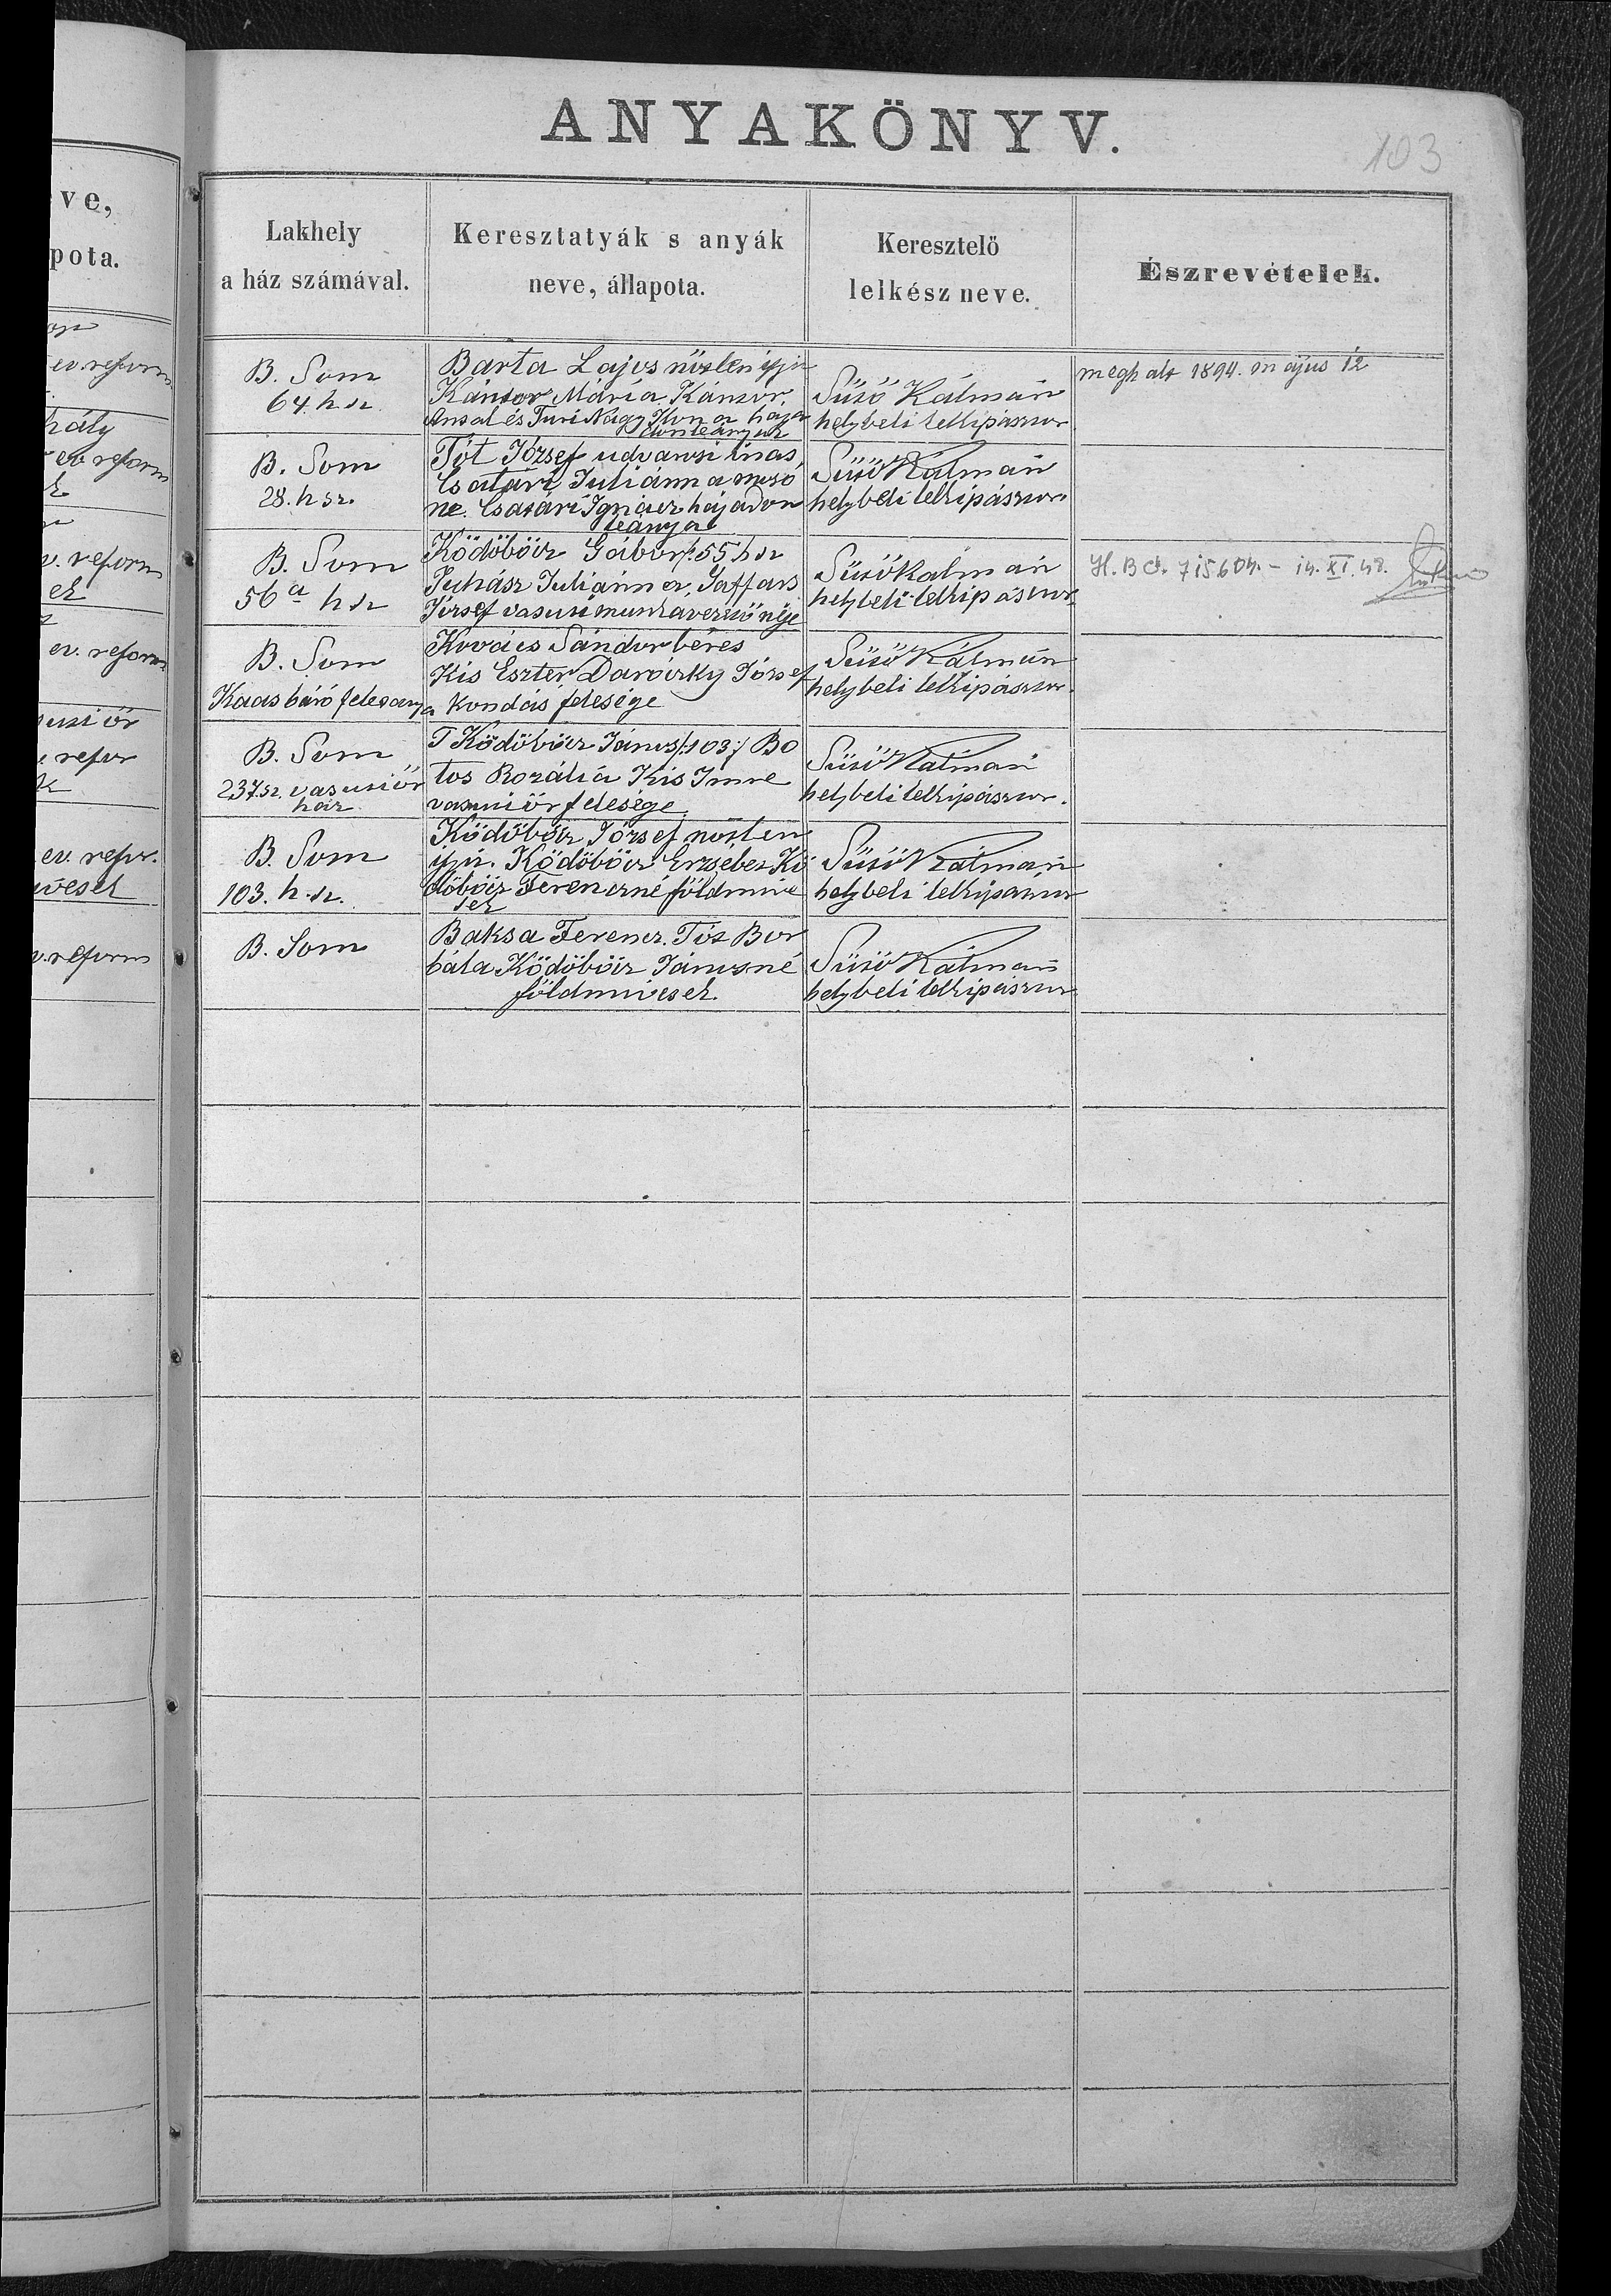 ANYAKÖNYV.
103
ve,
pota.
Lakhely
a ház számával.
Keresztatyák s anyák
neve, állapota.
Keresztelő
lelkész neve.
Észrevételek.
ev. reform
B. Som
64. h sz.
Barta Lajos nőtlen ifju
Kántor Mária Kántor
Antal és Turi Nagy Ilona hajadon leányuk
Süsö Kálmán
helybeli lelkipásztor
meghalt 1894. május 12
hály
ev. reform
B. Som
28. h sz.
Tót József udvarsi inas,
Csatári Juliánna mosó
né. Csatári Ignácz hajadon
leánya
Süsö Kálmán
helybeli lelkipásztor
v. reform
ek
B. Som
56 a h sz
Ködöböcz Gábor /:55 h sz
Juhász Juliánna, Jaffas
József vasuti munkavezető néje
Süsö Kálmán
helybeli lelkipásztor
H. B Ct. 715604. – 14. XI. 42.
ev. reform
B. Som
Kaas báró felesanya
Kovács Sándor béres
Kis Eszter Daróczky József
kondás felesége
Süsö Kálmán
helybeli lelkipásztor
vasuti őr
refor
B. Som
237. sz. vasuti őr
ház
T Ködöböcz János /:103:/ Bo
tos Rozália Kis Imre
vasuti őr felesége
Süsö Kálmán
helybeli lelkipásztor.
ev. refor.
ivesek
B. Som
103. h. sz.
Ködöböcz József nőtlen
ifju. Ködöböcz Erzsébet Kö
döböcz Ferenczné földmive
sek
Süsö Kálmán
helybeli lelkipásztor
v. reform
B. Som
Baksa Ferencz. Tót Bor
bála Ködöböcz Jánosné
földmivesek
Süsö Kálmán
helybeli lelkipásztor